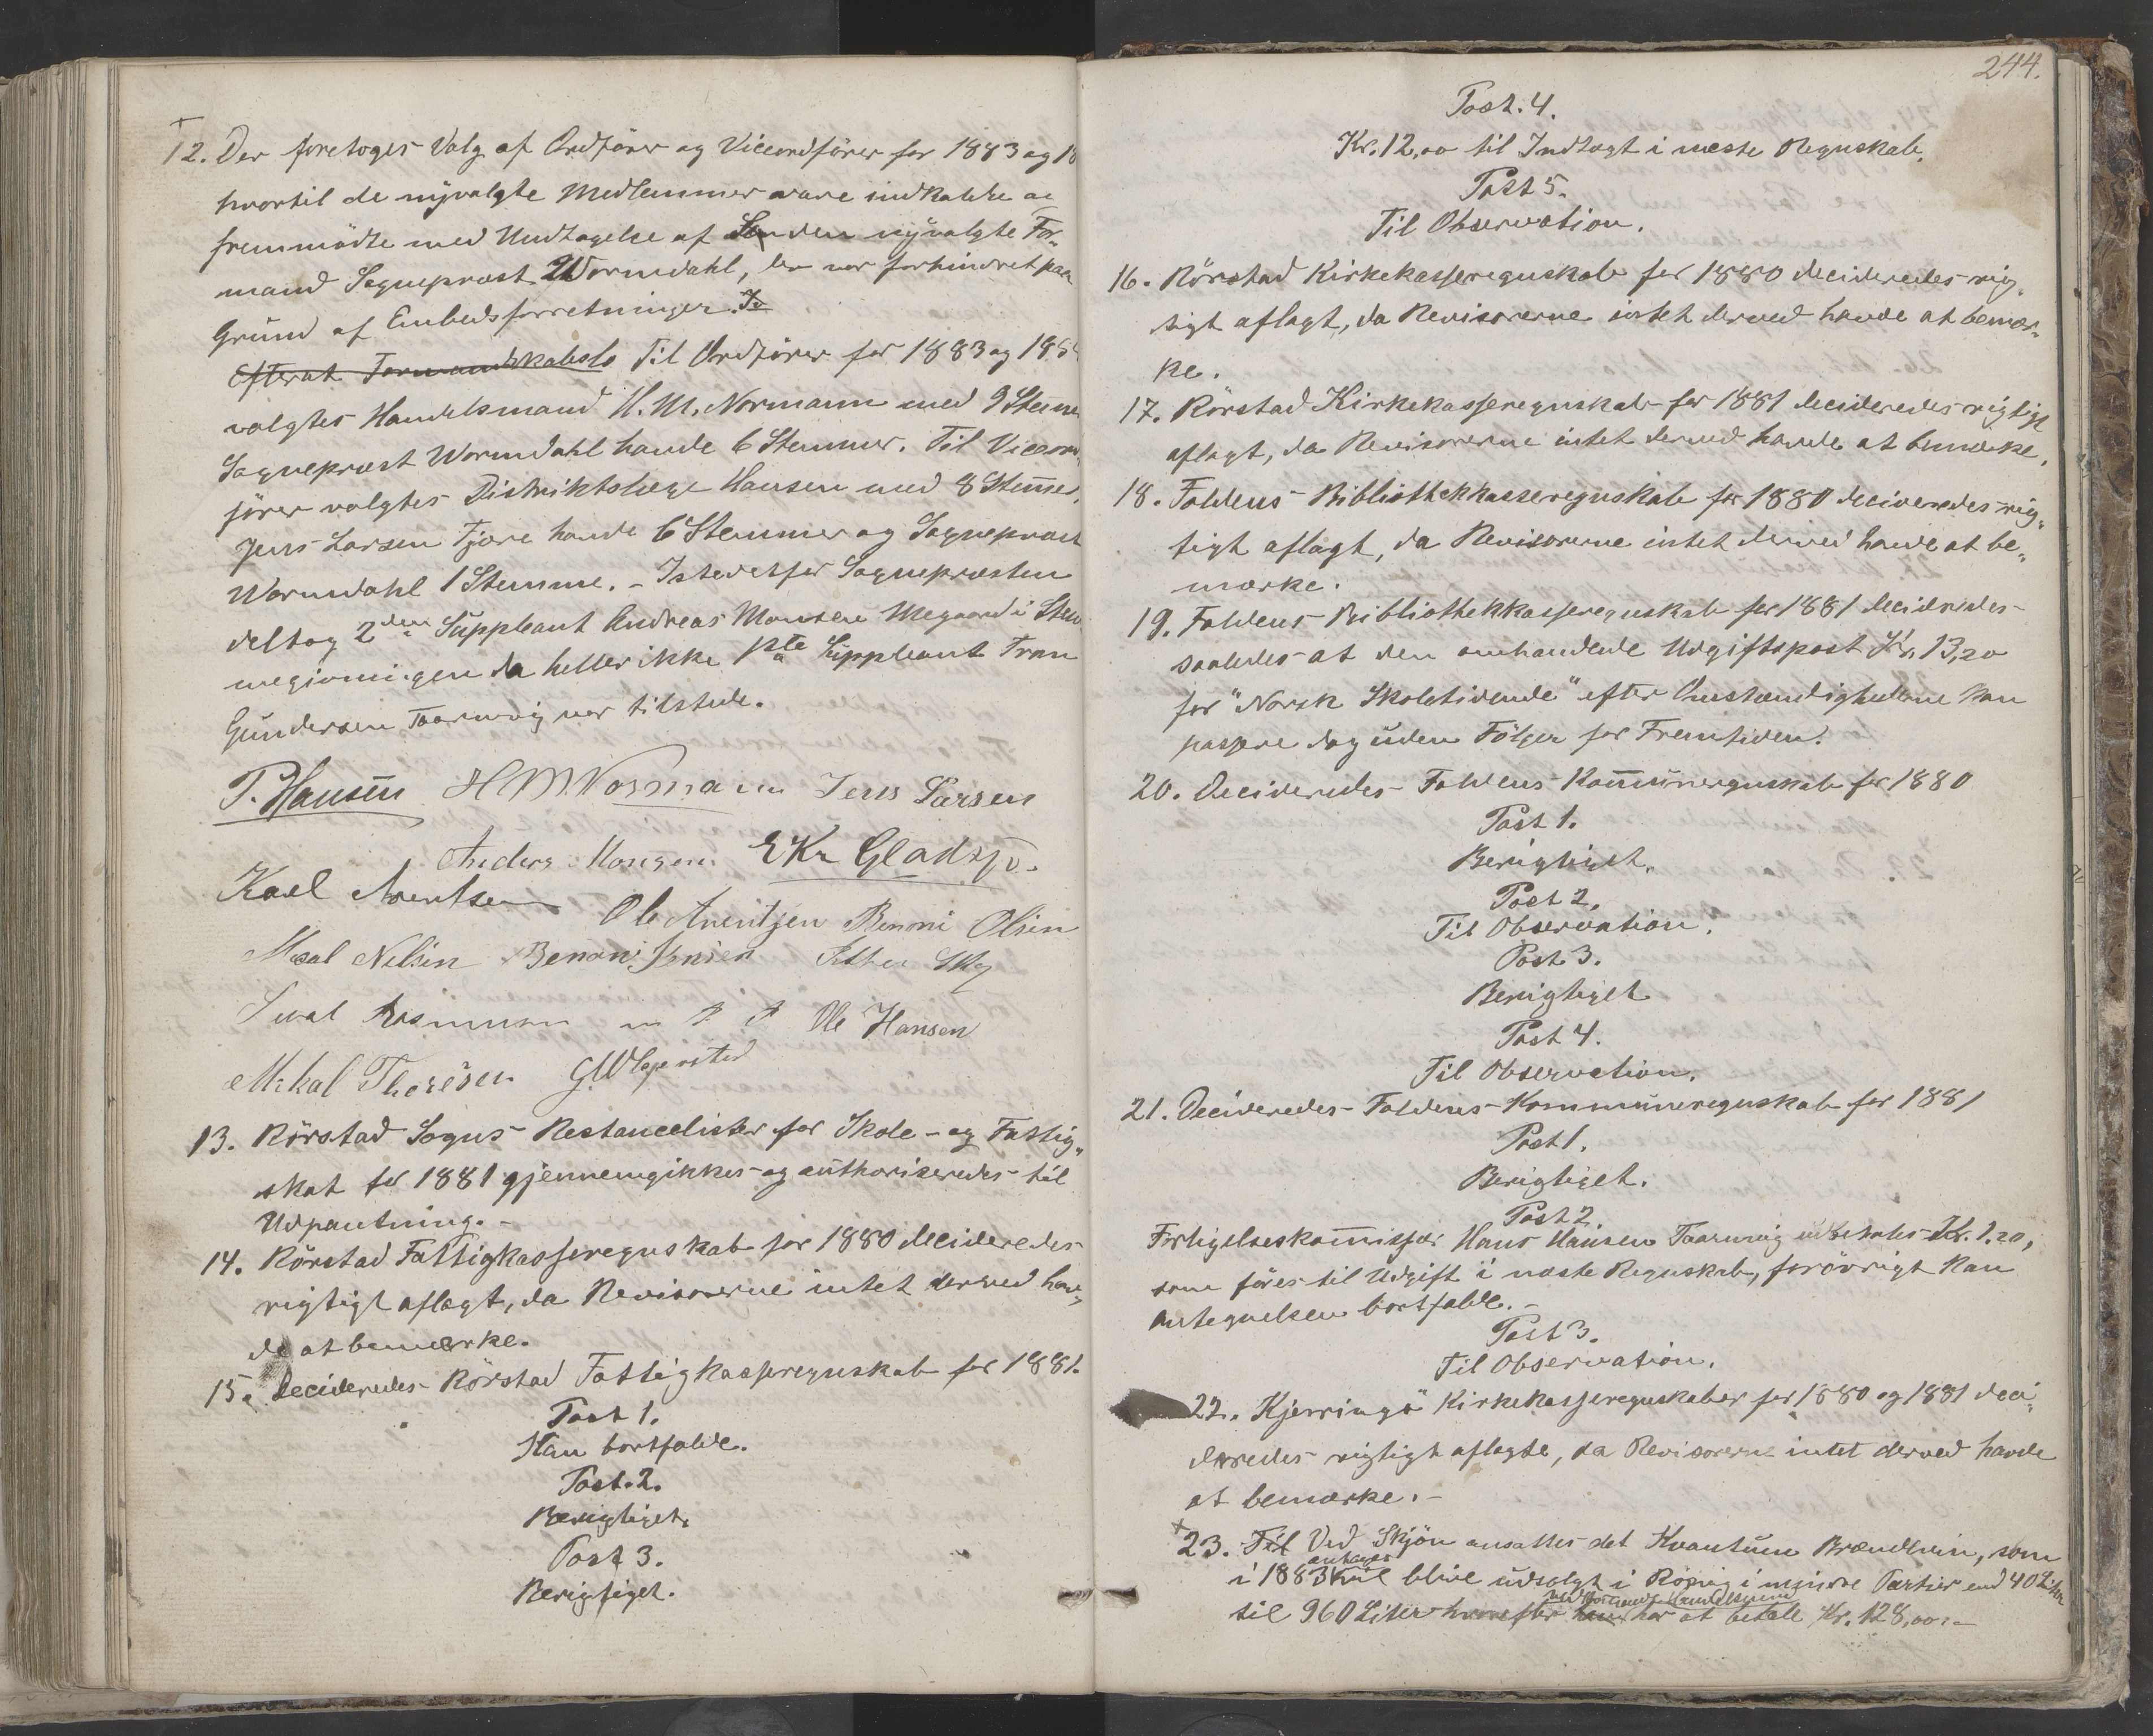 12. Der foretoges Valg af Ordförer og Viceordförer for 1883 og 18
hvortil de nyvalgte Medlemmer vare indkaldte og
fremmödte med Undtagelse af den nyvalgte For„
mand Sogneprest Wormdahl, der var forhindret paa
Grund af Embedsforretninger.
Efterat Formandskabets Til Ordförer for 1883 og 188
valgtes Handelsmand H. M. Normann med 9 Stemmer
Sogneprest Wormdahl havde 6 Stemmer. Til Viceord„
förer valgtes Distriktslæge Hansen med 8 Stemmer.
Jens Larsen Fjære havde 6 Stemmer og Sogneprest
Wormdahl 1 Stemme. - Istedetfor Sognepresten
deltog 2den Suppleant Andreas Monsen Megaard i Stem„
megivningen da heller ikke 1ste Suppleant Fran
Gundersen Taarnvig var tilstede.
P. Hansen H M Normann Jens Larsen
Anders Monsen E Kr Gladsjø.
Karl Arentsen Ole Arentzen Benoni Olsen
Nelsen Benoni Jensen
Sivat Rasmussen m p P Ole Hansen
Mikal Thoresen
13. Rörstad Sogns Restancelister for Skole- og Fattig„
skat for 1881 gjennemgikkes og authoriseredes til
Udpantning. -
14. Rörstad Fattigkasseregnskab for 1880 decideredes
rigtigt aflagt, da Revisorerne intet derved hav„
de at bemærke.
15. Decideredes Rörstad Fattigkasseregnskab for 1881.
Post 1.
Kan bortfalde.
Post. 2.
Berigtiget.
Post 3.
Berigtiget.
244.
Post. 4.
Kr. 12,00 til Indtægt i næste Regnskab.
Post 5.
Til Observation.
16. Rörstad Kirkekasseregnskab for 1880 decideredes rig„
tigt aflagt, da Revisorerne intet derved havde at bemær„
ke.
17. Rörstad Kirkekasseregnskab for 1881 decideredes rigtigt
aflagt, da Revisorerne intet derved havde at bemærke.
18. Foldens Bibliothekkasseregnskab for 1880 decideredes rig„
tigt aflagt, da Revisorerne intet derved havde at be„
mærke.
19. Foldens Bibliothekkasseregnskab for 1881 decideredes
saaledes at den omhandlede Udgiftspost Kr. 13,20
for "Norsk Skoletidende" efter Omstændighederne kan
passere dog uden Fölger for Fremtiden.
20. Decideredes Foldens Kommuneregnskab for 1880
Post 1.
Berigtiget.
Post 2.
Til Observation.
Post 3.
Berigtiget
Post 4.
Til Observation.
21. Decideredes Foldens Kommuneregnskab for 1881
Post 1.
Berigtiget.
Post 2.
Forligelseskommissær Hans Hansen Taarnvig udbetales Kr. 1.20,
som föres til Udgift i næste Regnskab, forövrigt kan
Antegnelsen bortfalde. -
Post 3.
Til Observation.
22. Kjerringö Kirkekasseregnskaber for 1880 og 1881 deci„
deredes rigtigt aflagte, da Revisorerne intet derved havde
at bemærke. -
23. Til Ved Skjön ansattes det Kvantum Brændevin, som
antages
i 1883 vil blive udsolgt i Röpvig i mindre Partier end 40 Liter
Handelsmand
til 960 Liter hvorefter han har at betale Kr. 128,00. -